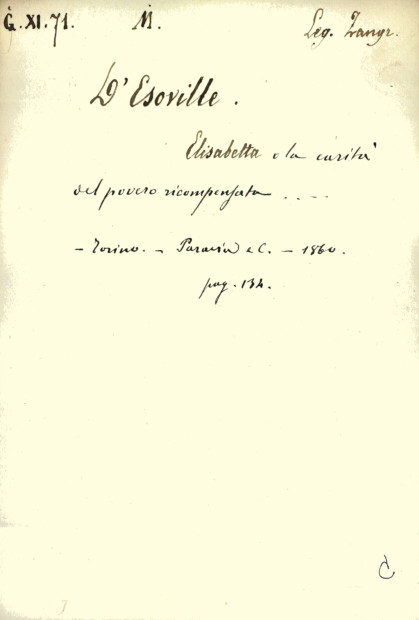 G.XI.71. M. Leg. Zangr.
D'Esoville.
Elisabetta o la carità
del povero ricompensata ....
- Torino. - Paravia e C. - 1860.
pag. 134.
C